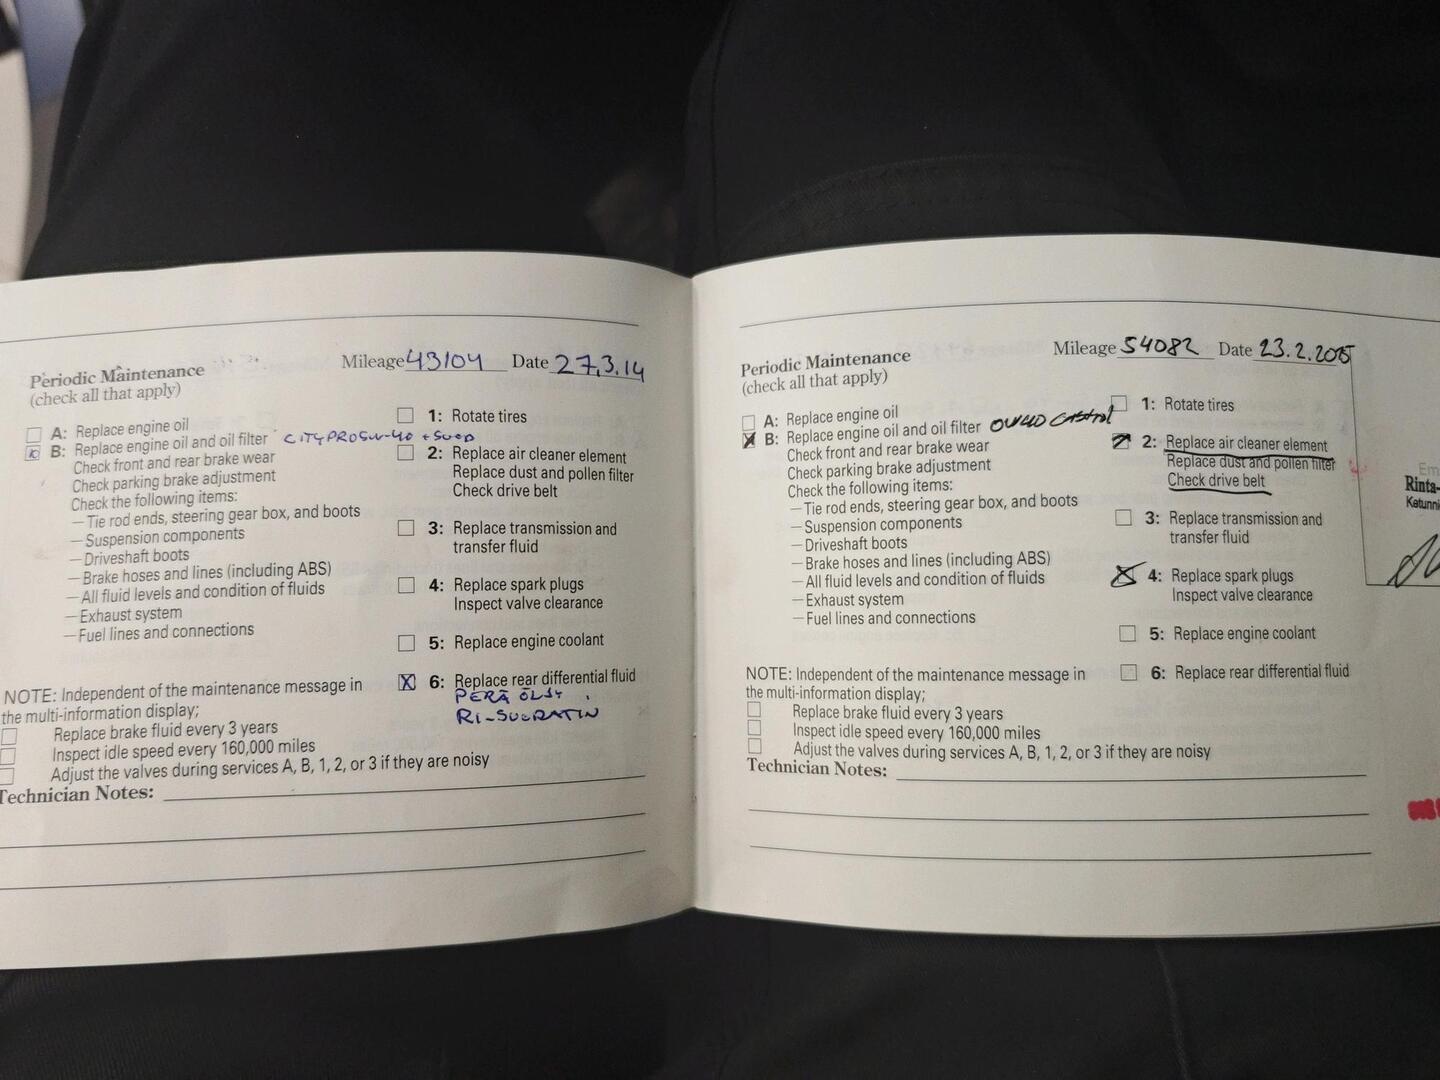 Mileage 43104 Date 27.3.14
Periodic Maintenance
(check all that apply)
A: Replace engine oil
B: Replace engine oil and oil filter
Check front and rear brake wear
Check parking brake adjustment
Check the following items:
—Tie rod ends, steering gear box, and boots
—Suspension components
—Driveshaft boots
—Brake hoses and lines (including ABS)
—All fluid levels and condition of fluids
—Exhaust system
—Fuel lines and connections
1: Rotate tires
2: Replace air cleaner element
Replace dust and pollen filter
Check drive belt
3: Replace transmission and
transfer fluid
4: Replace spark plugs
Inspect valve clearance
5: Replace engine coolant
X 6: Replace rear differential fluid
PERÄ ÖLJY
NOTE: Independent of the maintenance message in
the multi-information display;
Replace brake fluid every 3 years
Inspect idle speed every 160,000 miles
Adjust the valves during services A, B, 1, 2, or 3 if they are noisy
Technician Notes:
Mileage 54082 Date 23.2.2015
Periodic Maintenance
(check all that apply)
A: Replace engine oil
X B: Replace engine oil and oil filter 0W40 Castrol
Check front and rear brake wear
Check parking brake adjustment
Check the following items:
—Tie rod ends, steering gear box, and boots
—Suspension components
—Driveshaft boots
—Brake hoses and lines (including ABS)
—All fluid levels and condition of fluids
—Exhaust system
—Fuel lines and connections
1: Rotate tires
2: Replace air cleaner element
Replace dust and pollen filter
Check drive belt
3: Replace transmission and
transfer fluid
X 4: Replace spark plugs
Inspect valve clearance
5: Replace engine coolant
6: Replace rear differential fluid
NOTE: Independent of the maintenance message in
the multi-information display;
Replace brake fluid every 3 years
Inspect idle speed every 160,000 miles
Adjust the valves during services A, B, 1, 2, or 3 if they are noisy
Technician Notes:
Em
Rinta-
Katunni